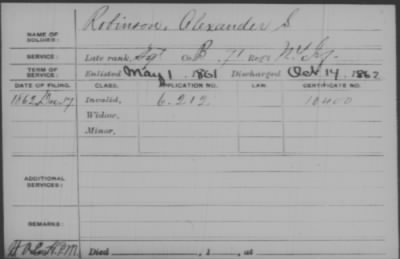 NAME OF SOLDIER: Robinson, Alexander S
SERVICE: Late rank, Sgt Co. B, 71 Reg't N.Y. Inf.
TERM OF SERVICE: Enlisted May 1, 1861 Discharged Oct 14, 1862
DATE OF FILING. CLASS. APPLICATION NO. LAW. CERTIFICATE NO.
1862 Dec. 17 Invalid, 6.212 10400
Widow,
Minor,
ADDITIONAL SERVICES:
REMARKS:
Died , 1 , at